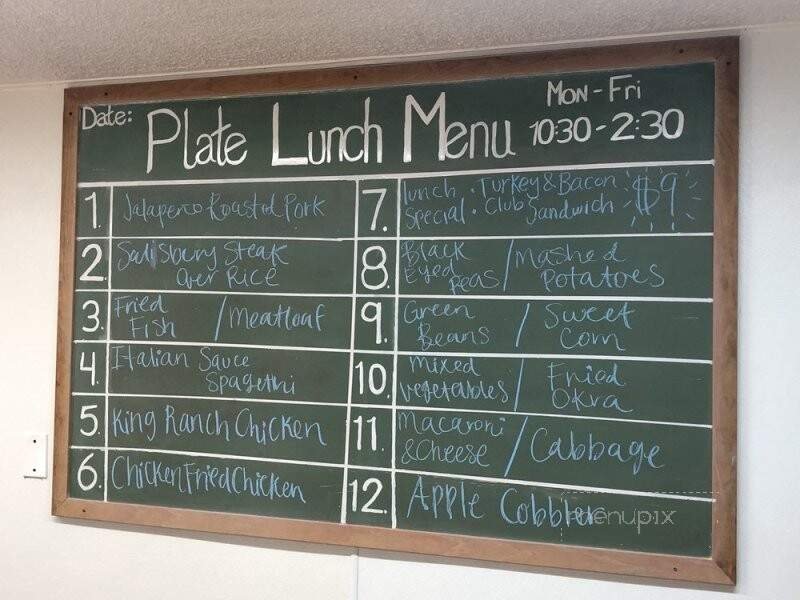 Date: Plate Lunch Menu Mon - Fri
10:30 - 2:30
1. Jalapeno Roasted Pork
2. Salisbury Steak
over Rice
3. Fried
Fish / Meatloaf
4. Italian Sauce
Spagethi
5. King Ranch Chicken
6. Chicken Fried Chicken
7. lunch · Turkey & Bacon
Special · Club Sandwich $9
8. Black
Eyed
Peas / Mashed
Potatoes
9. Green
Beans / Sweet
Corn
10. mixed
vegetables / Fried
Okra
11. Macaroni
& Cheese / Cabbage
12. Apple Cobbler
menupix